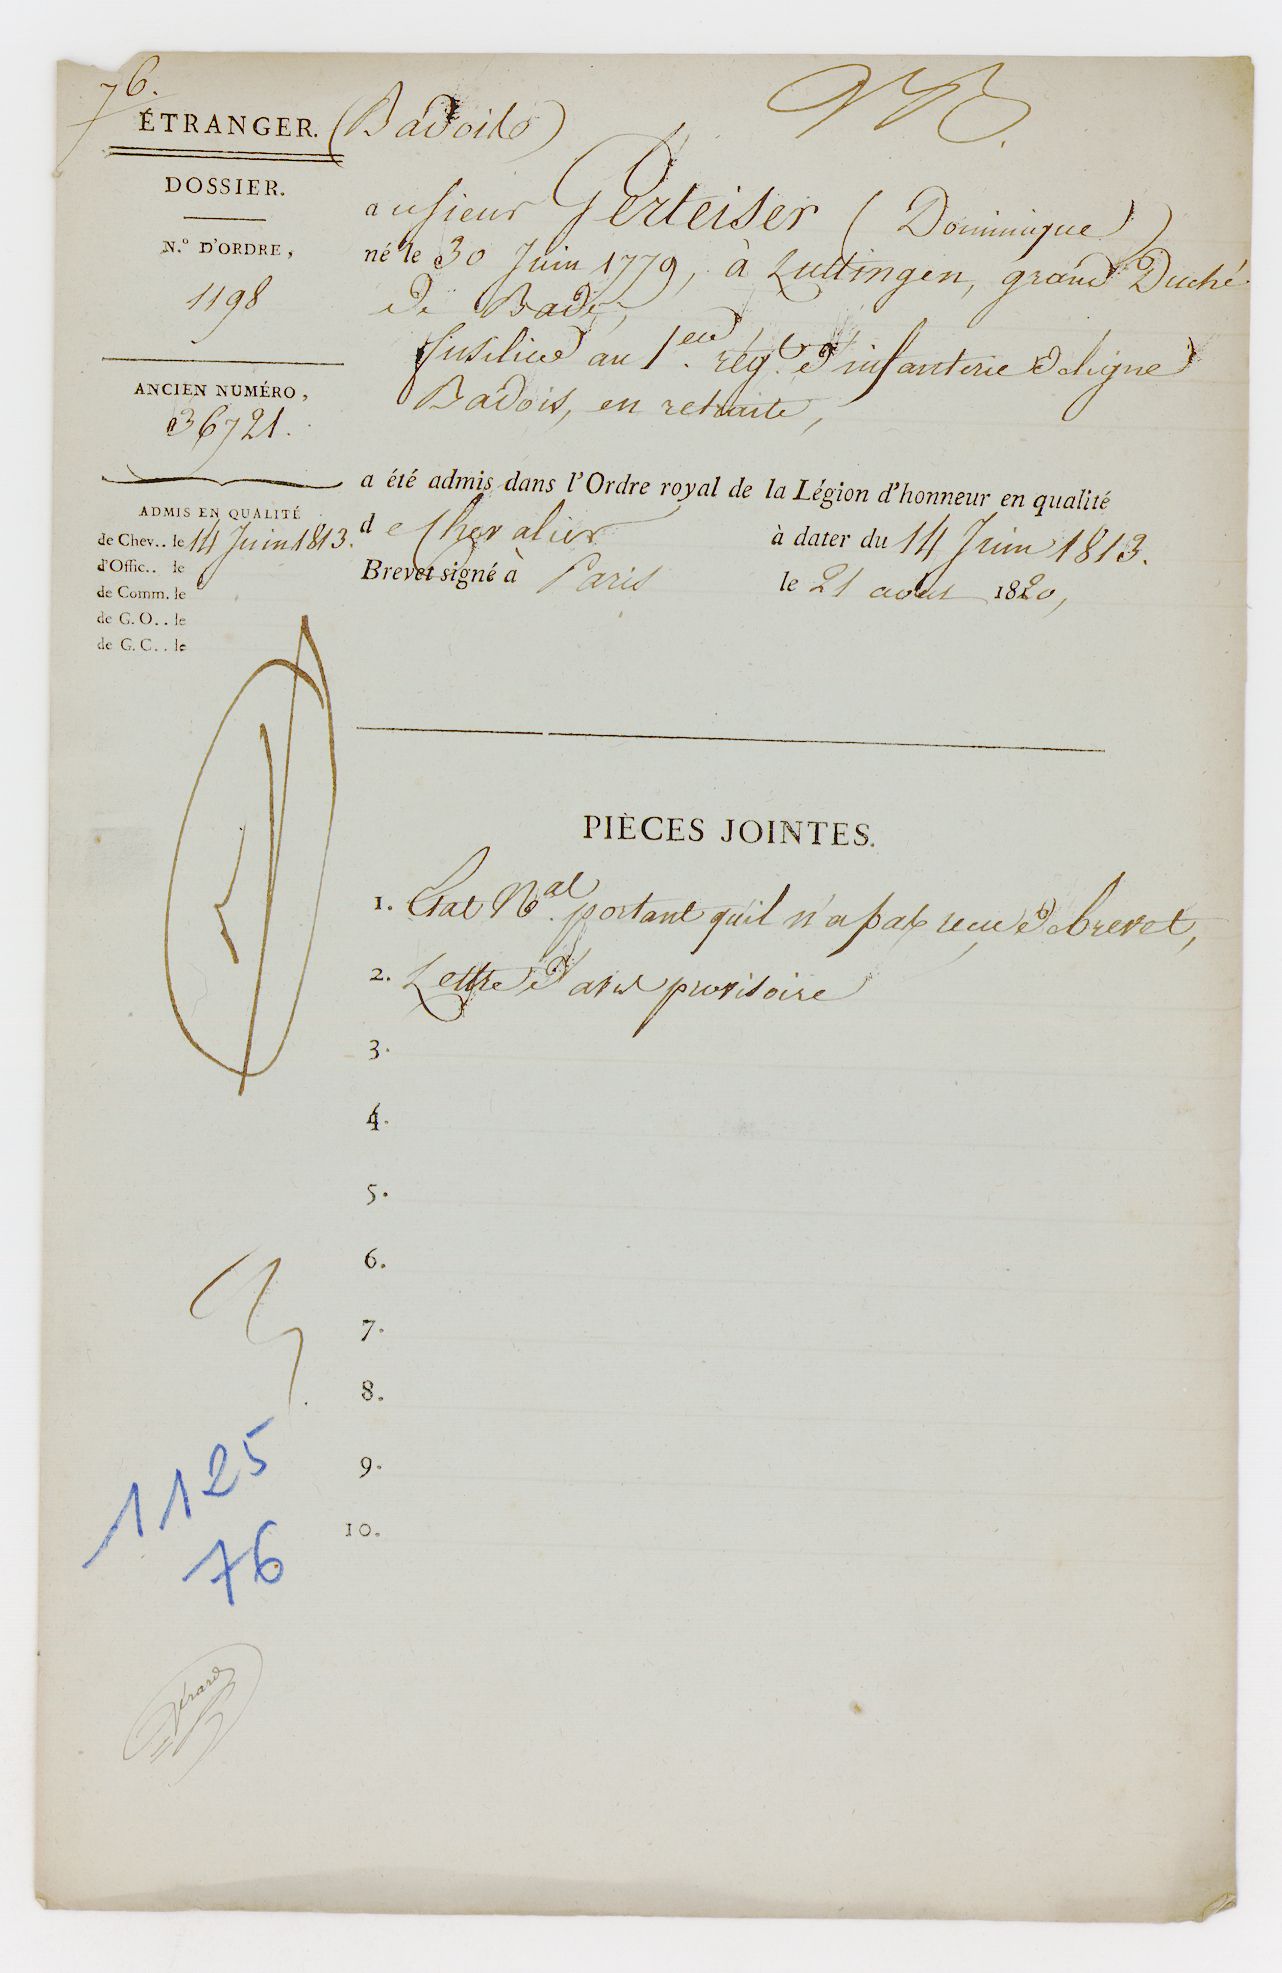 76.
ÉTRANGER. (Badois)
DOSSIER.
N.° D'ORDRE,
1198
ANCIEN NUMÉRO,
36721.
ADMIS EN QUALITÉ
de Chev.. le 14 Juin 1813.
d'Offic.. le
de Comm. le
de G. O. . le
de G. C. . le
au sieur Gerteiser (Dominique)
né le 30 Juin 1779, à Luttingen, grand Duché
de Bade,
fusilier au 1er. rég.t d'infanterie de ligne
Badois, en retraite,
a été admis dans l'Ordre royal de la Légion d'honneur en qualité
de Chevalier à dater du 14 Juin 1813.
Brevet signé à Paris le 21 aout 1820,
PIÈCES JOINTES.
1. Etat N.al portant qu'il n'a pas reçu de brevet,
2. Lettre d'avis provisoire
3.
4.
5.
6.
7.
8.
9.
10.
1125
76
Gérard